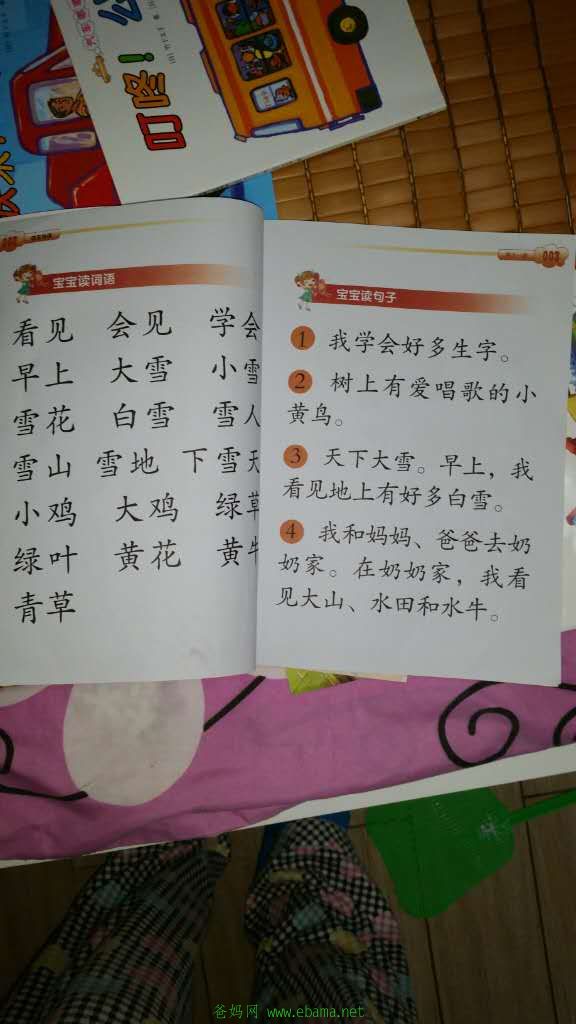 叮咚！公
宝宝读词语
看见 会见 学会
早上 大雪 小雪
雪花 白雪 雪人
雪山 雪地 下雪天
小鸡 大鸡 绿草
绿叶 黄花 黄牛
青草
003
宝宝读句子
1 我学会好多生字。
2 树上有爱唱歌的小
黄鸟。
3 天下大雪。早上，我
看见地上有好多白雪。
4 我和妈妈、爸爸去奶
奶家。在奶奶家，我看
见大山、水田和水牛。
爸妈网 www.ebama.net